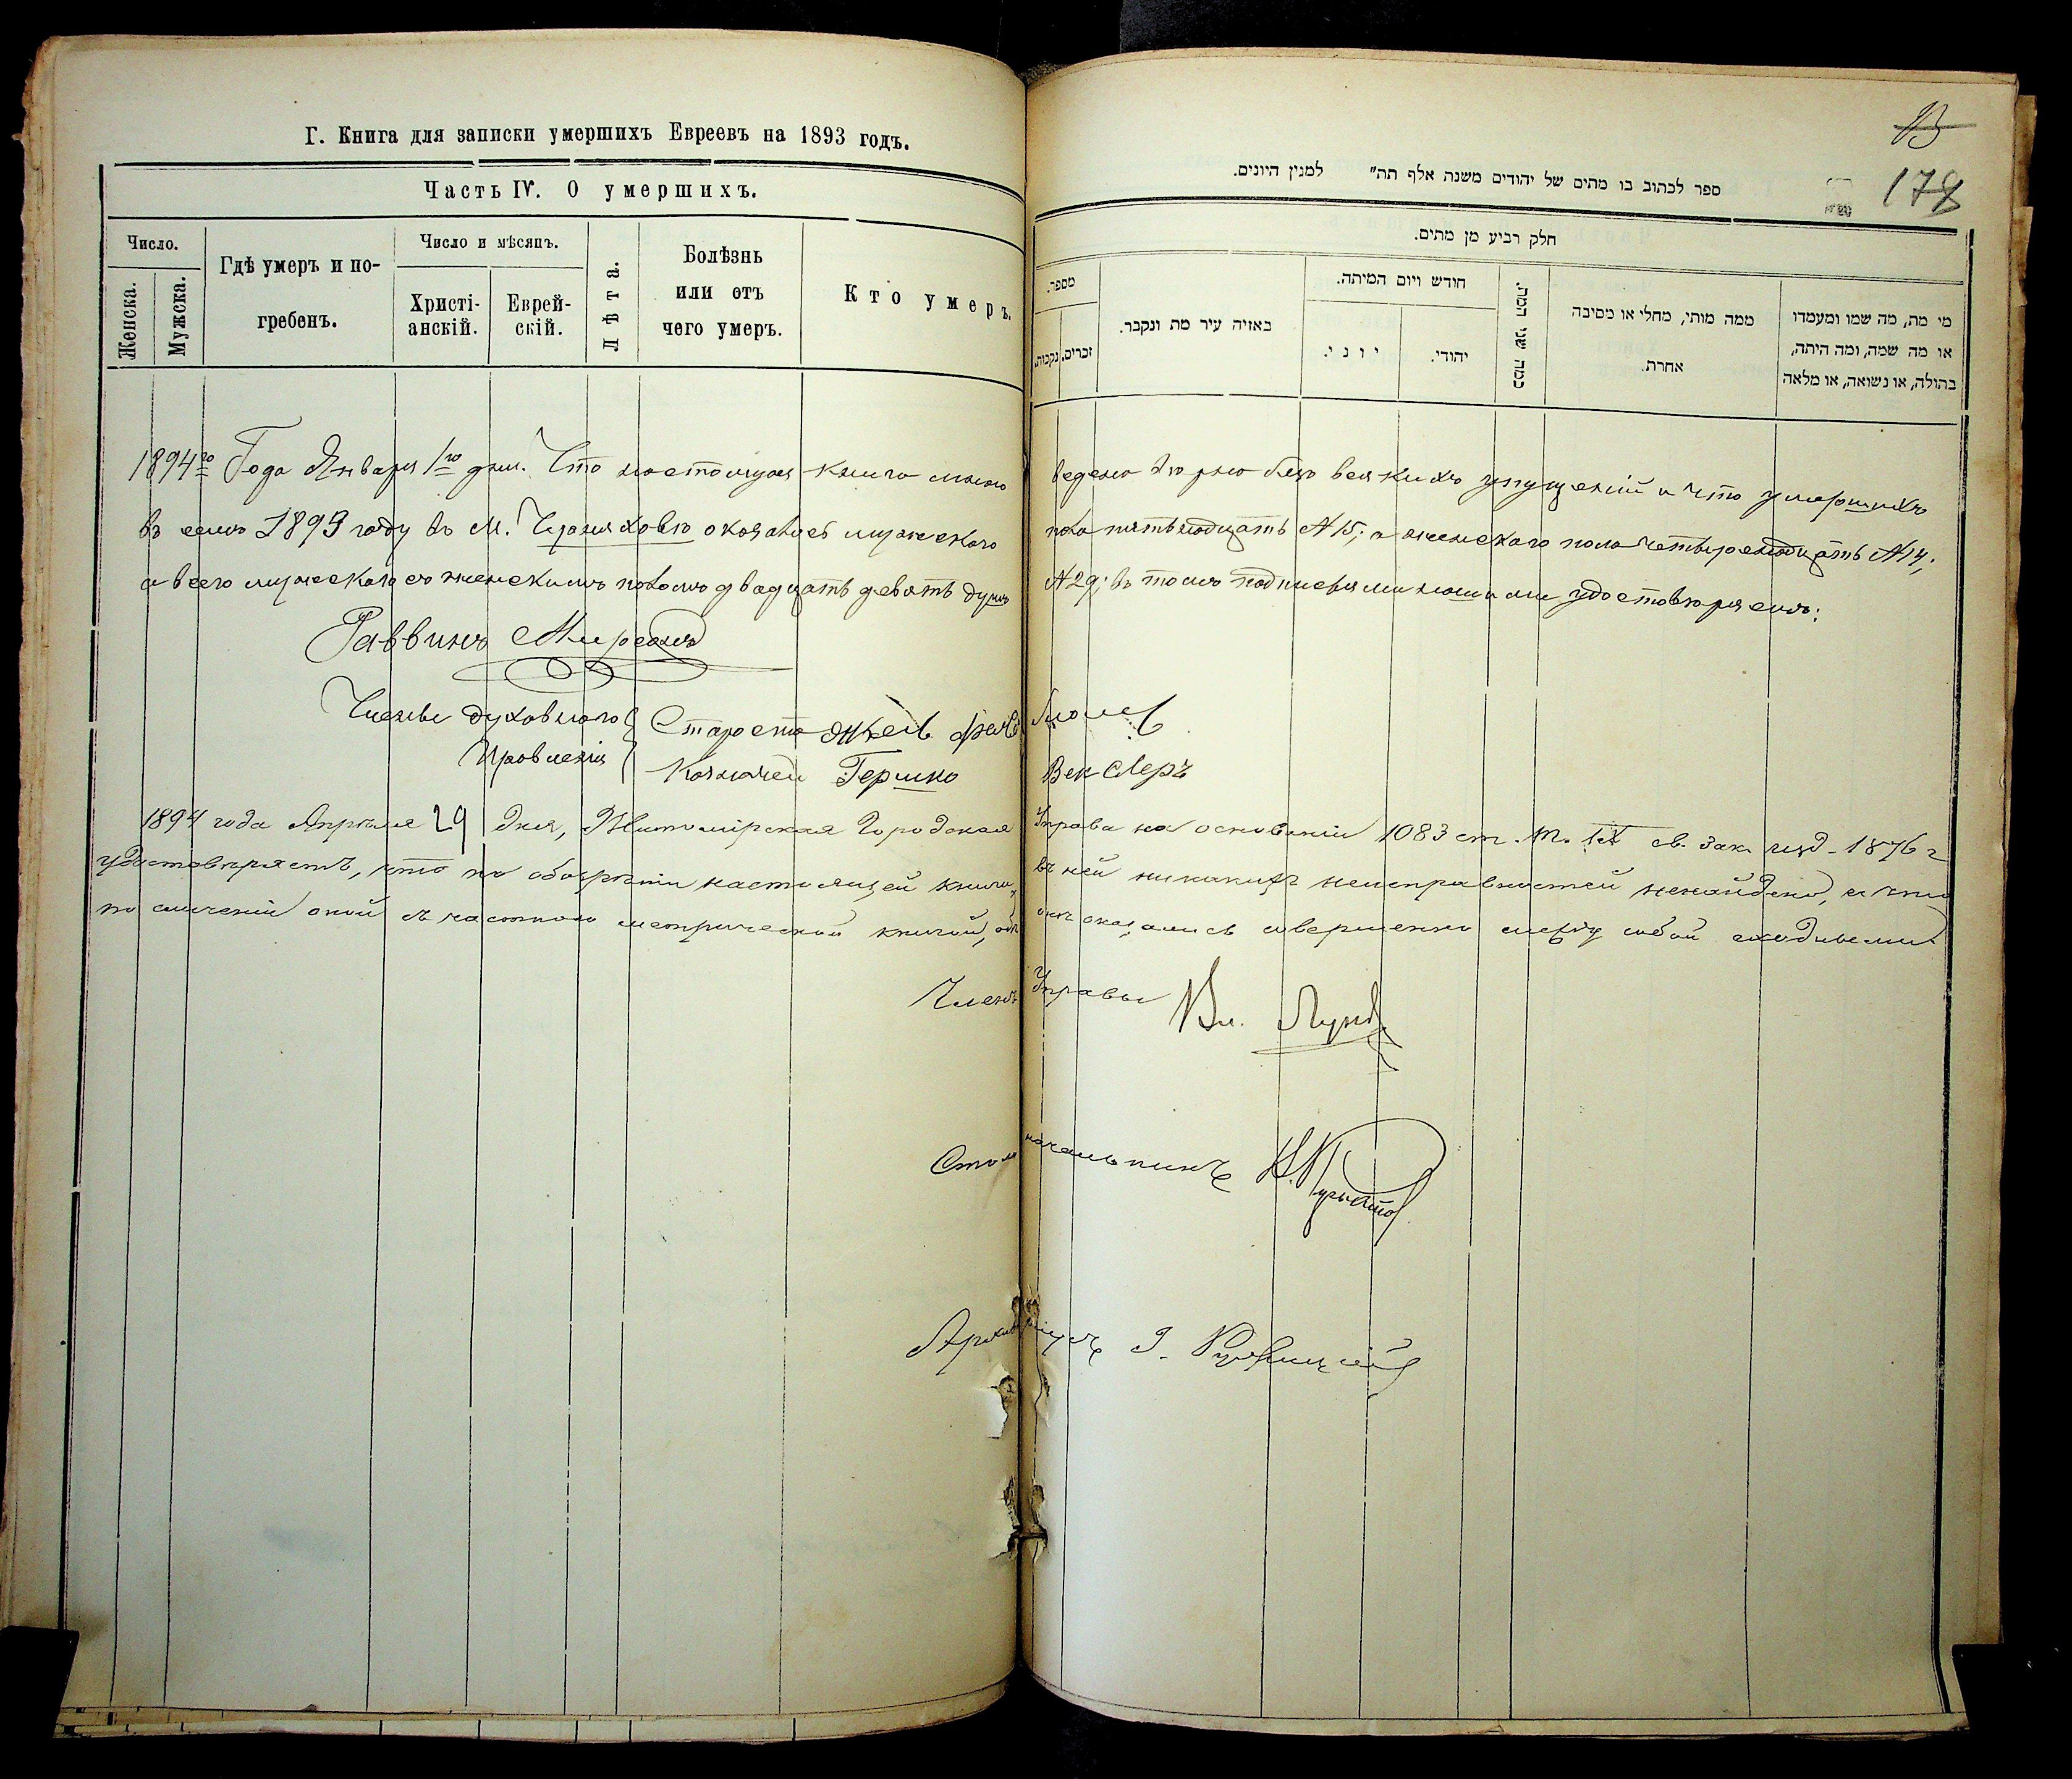 Г. Книга для записки умершихъ Евреевъ на 1893 годъ.
Часть IV. О умершихъ.
Число.
Женска.
Мужска.
Гдѣ умеръ и по-
гребенъ.
Число и мѣсяцъ.
Христі-
анскій.
Еврей-
скій.
Лѣта.
Болѣзнь
или отъ
чего умеръ.
Кто умеръ.
13
178
ספר לכתוב בו מתים של יהודים משנה אלף תה״ למנין היונים.
חלק רביע מן מתים.
מספר.
זכרים.
נקבות.
באיזה עיר מת ונקבר.
חודש ויום המיתה.
יוני.
יהודי.
כמה שני המת.
ממה מותי, מחלי או מסיבה
אחרת.
מי מת, מה שמו ומעמדו
או מה שמה, ומה היתה,
בתולה, או נשואה, או מלאה
1894го Года Января 1го дня. Что настоящая книга мною ведена вѣрно безъ всякихъ упущеній и что умершихъ
въ семъ 1893 году въ М. Черняховѣ оказалось мужескаго пола пятьнадцать №15; а женскаго пола четыренадцать №14;
а всего мужескаго съ женскимъ поломъ двадцать девять душъ №29; въ томъ подписями нашими удостовѣряемъ:
Раввинъ
Члены духовнаго
Правленія
Староста
Казначей Гершко Векслеръ
1894 года Апрѣля 29 дня, Житомірская Городская Управа на основаніи 1083 ст. т. IX св. зак. изд. 1876 г
удостовѣряетъ, что по обозрѣніи настоящей книги, въ ней никакихъ неисправностей ненайдено, и что
по сличеніи оной съ частною метрической книгой, обѣ онѣ оказались совершенно между собой сходными
Членъ Управы Вл.
Столоначальникъ Н.
Архиваріусъ